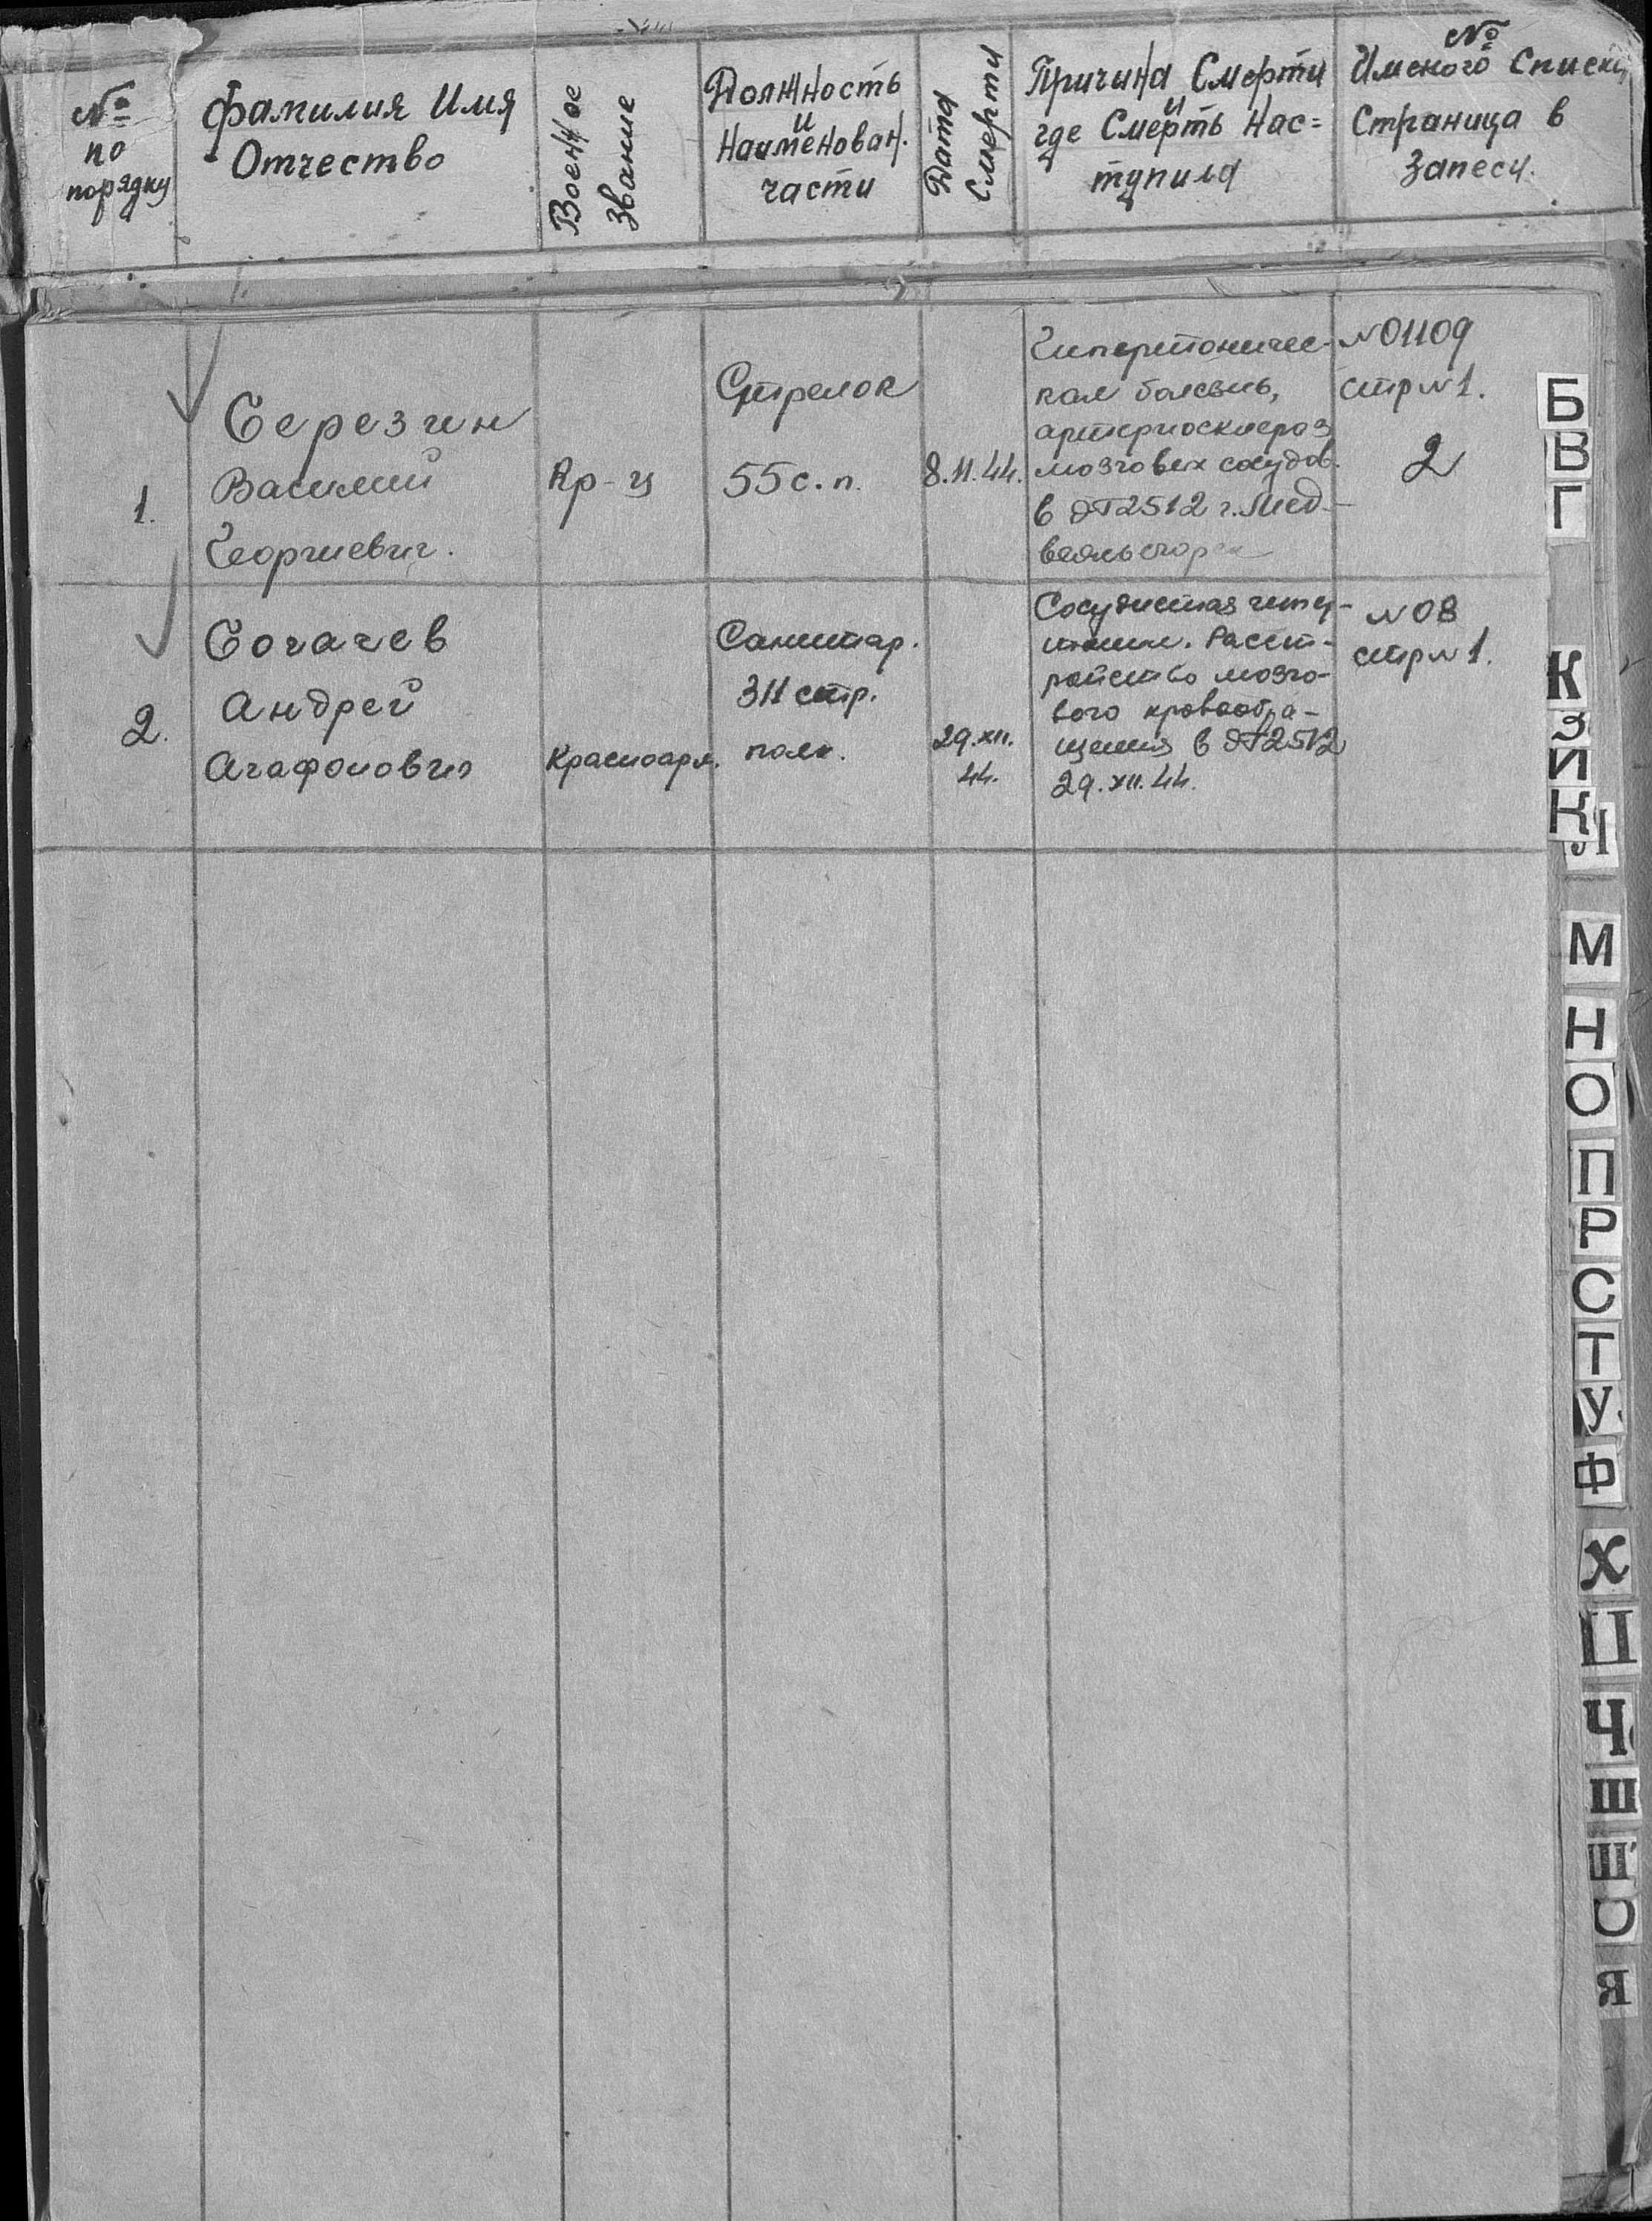 №
по
порядку
Фамилия Имя
Отчество
Военное
Звание
Должность
и
Наименован.
части
Дата
Смерти
Причина Смерти
и
где Смерть Нас=
тупила
№
Имского Списка
Страница в
Запеси.
1.
Березин
Василий
Георгиевич.
Кр-ц
Стрелок
55 с. п.
8.11.44.
Гипертоничес-
кая болезнь,
артериосклероз
мозговых сосудов.
в ЭГ2512 г. Мед-
вежьегорск
№01109
стр №1.
2
2.
Богачев
Андрей
Агафонович
Красноарм.
Санитар.
311 стр.
полк.
29.XII.
44.
Сосудистая гипер-
тония. Расст-
ройство мозго-
вого кровообра-
щения в ЭГ2512
29.XII.44.
№08
стр №1.
Б
В
Г
К
З
И
К
Л
М
Н
О
П
Р
С
Т
У
Ф
Х
Ц
Ч
Ш
Я